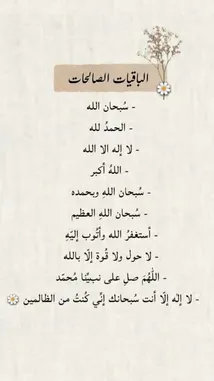 الباقيات الصالحات
- سُبحان الله
- الحمدُ لله
- لا إله الا الله
- اللهُ أكبر
- سُبحان اللهِ وبحمده
- سُبحان اللهِ العظيم
- أستغفرُ الله وأتُوب إليَهِ
- لا حول ولا قُوة إلّا بالله
- اللّٰهُمَ صلِ على نبيِنًا مُحمّد
- لا إلٰه إلّا أنت سُبحانك إنّي كُنتُ من الظالمين